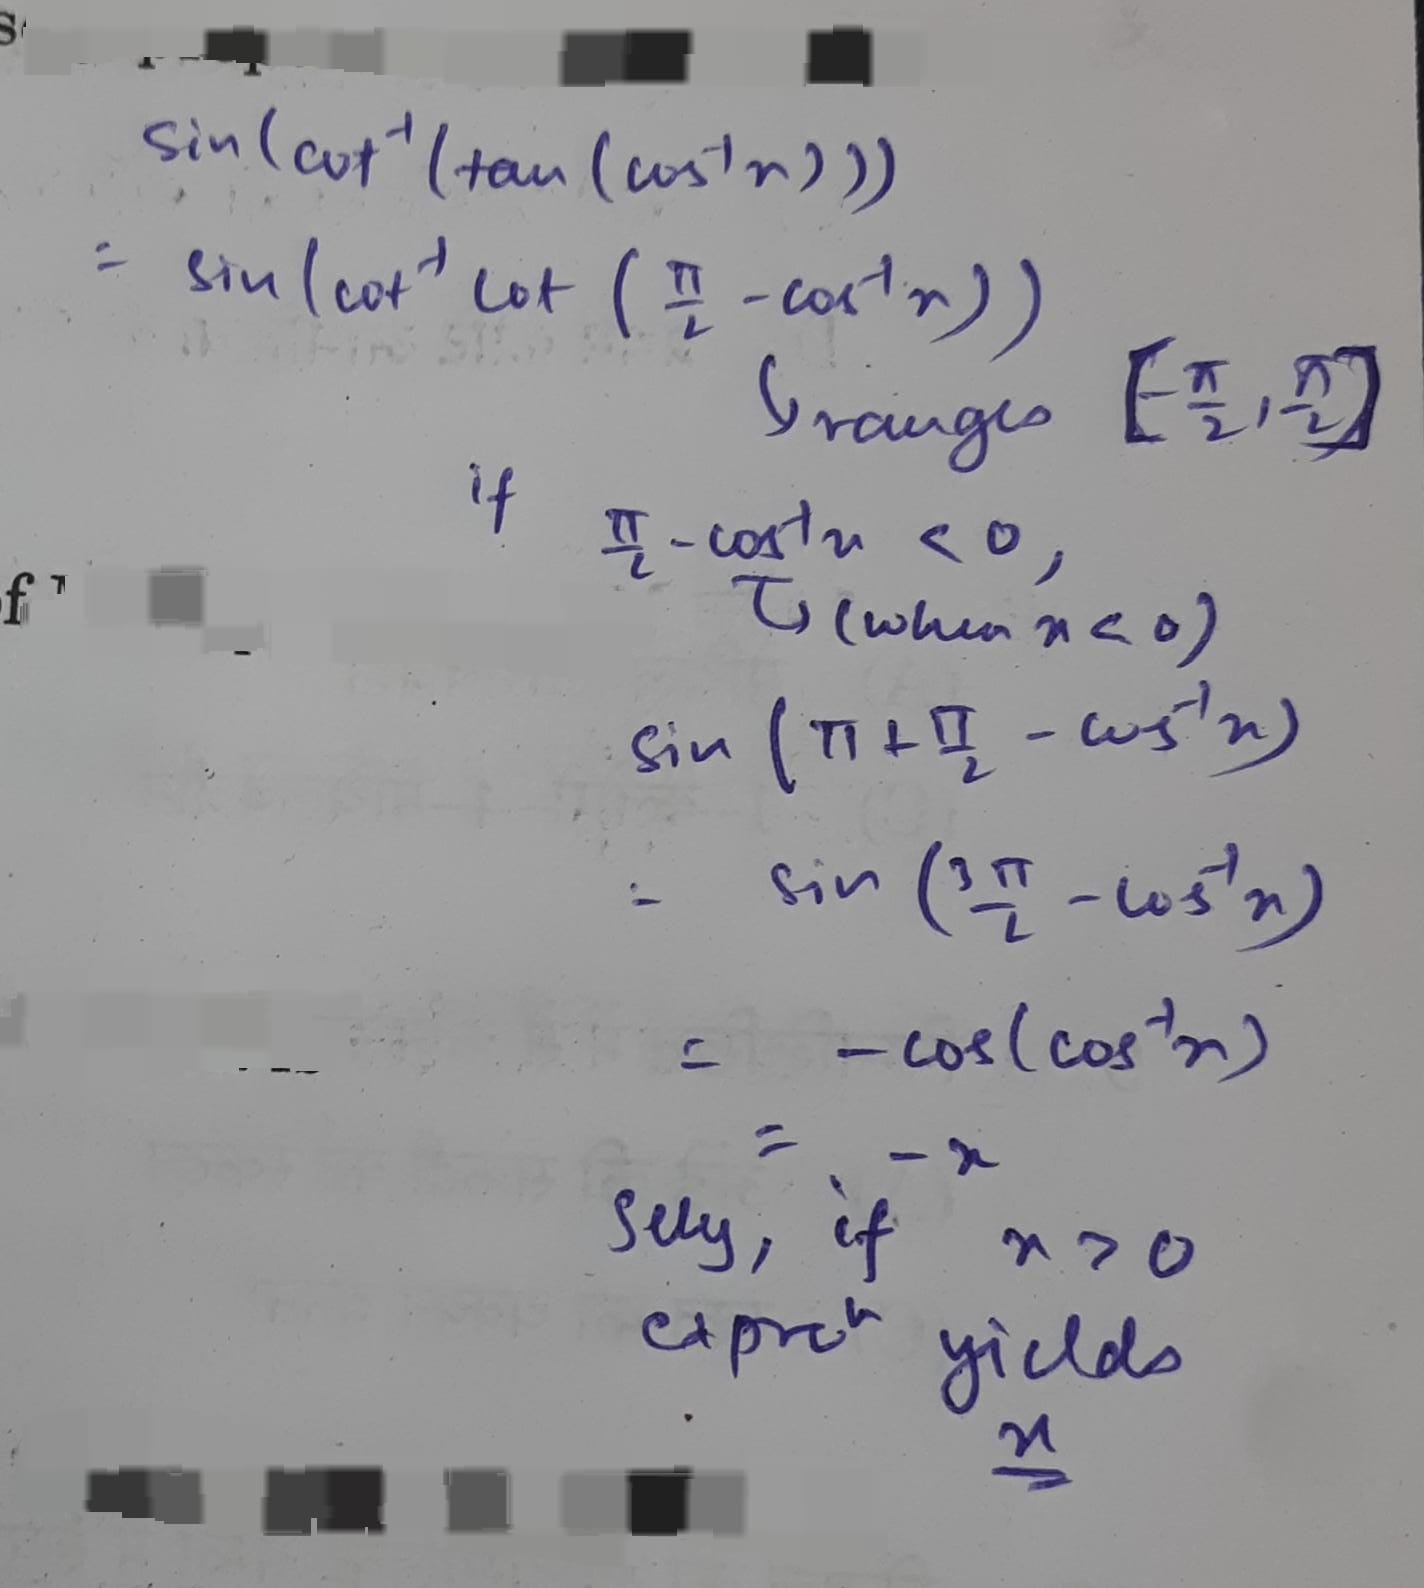 sin(cot⁻¹(tan(cos⁻¹x)))
= sin(cot⁻¹ cot (π/2 - cos⁻¹x))
↳ ranges [-π/2, π/2]
if π/2 - cos⁻¹x < 0,
↳ (when x < 0)
sin (π + π/2 - cos⁻¹x)
= sin (3π/2 - cos⁻¹x)
= - cos(cos⁻¹x)
= - x
Slly, if x > 0
exprⁿ yields
x